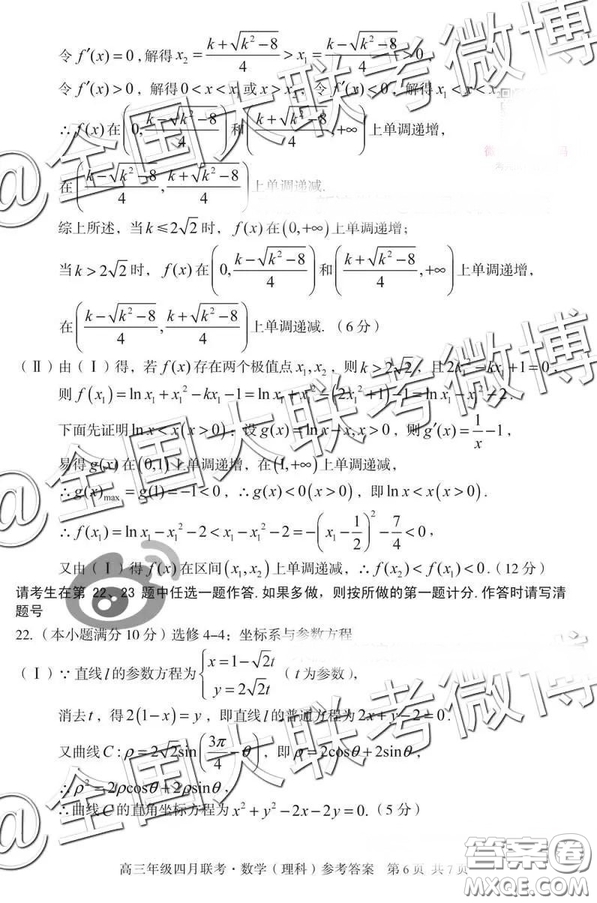 令 f′(x)=0，解得 x₂=(k+√(k²−8))/4 > x₁=(k−√(k²−8))/4 > 0，
令 f′(x)>0，解得 0<x<x₁ 或 x>x₂，令 f′(x)<0，解得 x₁<x<x
∴f(x)在(0,(k−√(k²−8))/4)和((k+√(k²−8))/4,+∞)上单调递增，
在((k−√(k²−8))/4,(k+√(k²−8))/4)上单调递减.
综上所述，当 k≤2√2 时，f(x)在(0,+∞)上单调递增；
当 k>2√2 时，f(x)在(0,(k−√(k²−8))/4)和((k+√(k²−8))/4,+∞)上单调递增，
在((k−√(k²−8))/4,(k+√(k²−8))/4)上单调递减.（6分）
（Ⅱ）由（Ⅰ）得，若 f(x)存在两个极值点 x₁,x₂，则 k>2√2，且 2x₁²−kx₁+1=0，
则 f(x₁)=lnx₁+x₁²−kx₁−1=lnx₁+x₁²−(2x₁²+1)−1=lnx₁−x₁²−2.
下面先证明 lnx<x(x>0)，设 g(x)=lnx−x,x>0，则 g′(x)=1/x−1，
易得 g(x)在(0,1)上单调递增，在(1,+∞)上单调递减，
∴g(x)max=g(1)=−1<0，∴g(x)<0(x>0)，即 lnx<x(x>0).
∴f(x₁)=lnx₁−x₁²−2<x₁−x₁²−2=−(x₁−1/2)²−7/4<0，
又由（Ⅰ）得 f(x)在区间(x₁,x₂)上单调递减，∴f(x₂)<f(x₁)<0.（12分）
请考生在第 22、23 题中任选一题作答.如果多做，则按所做的第一题计分.作答时请写清
题号
22.（本小题满分10分）选修4-4：坐标系与参数方程
（Ⅰ）∵直线 l 的参数方程为{x=1−√2t y=2√2t（t 为参数），
消去 t，得 2(1−x)=y，即直线 l 的普通方程为 2x+y−2=0.
又曲线 C：ρ=2√2sin(3π/4−θ)，即 ρ=2cosθ+2sinθ，
∴ρ²=2ρcosθ+2ρsinθ，
∴曲线 C 的直角坐标方程为 x²+y²−2x−2y=0.（5分）
高三年级四月联考·数学（理科）参考答案 第6页 共7页
@全国大联考微博
@全国大联考微博
@全国大联考微博